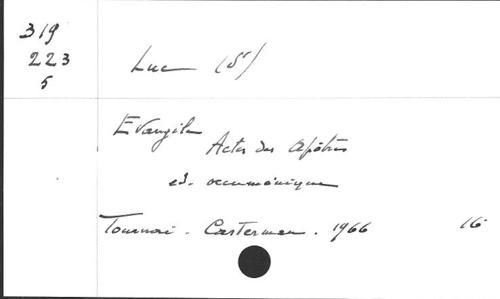 319
223
5
Luc (St)
Evangile
Actes des Apôtres
ed. oecuménique
Tournai - Casterman . 1966 16